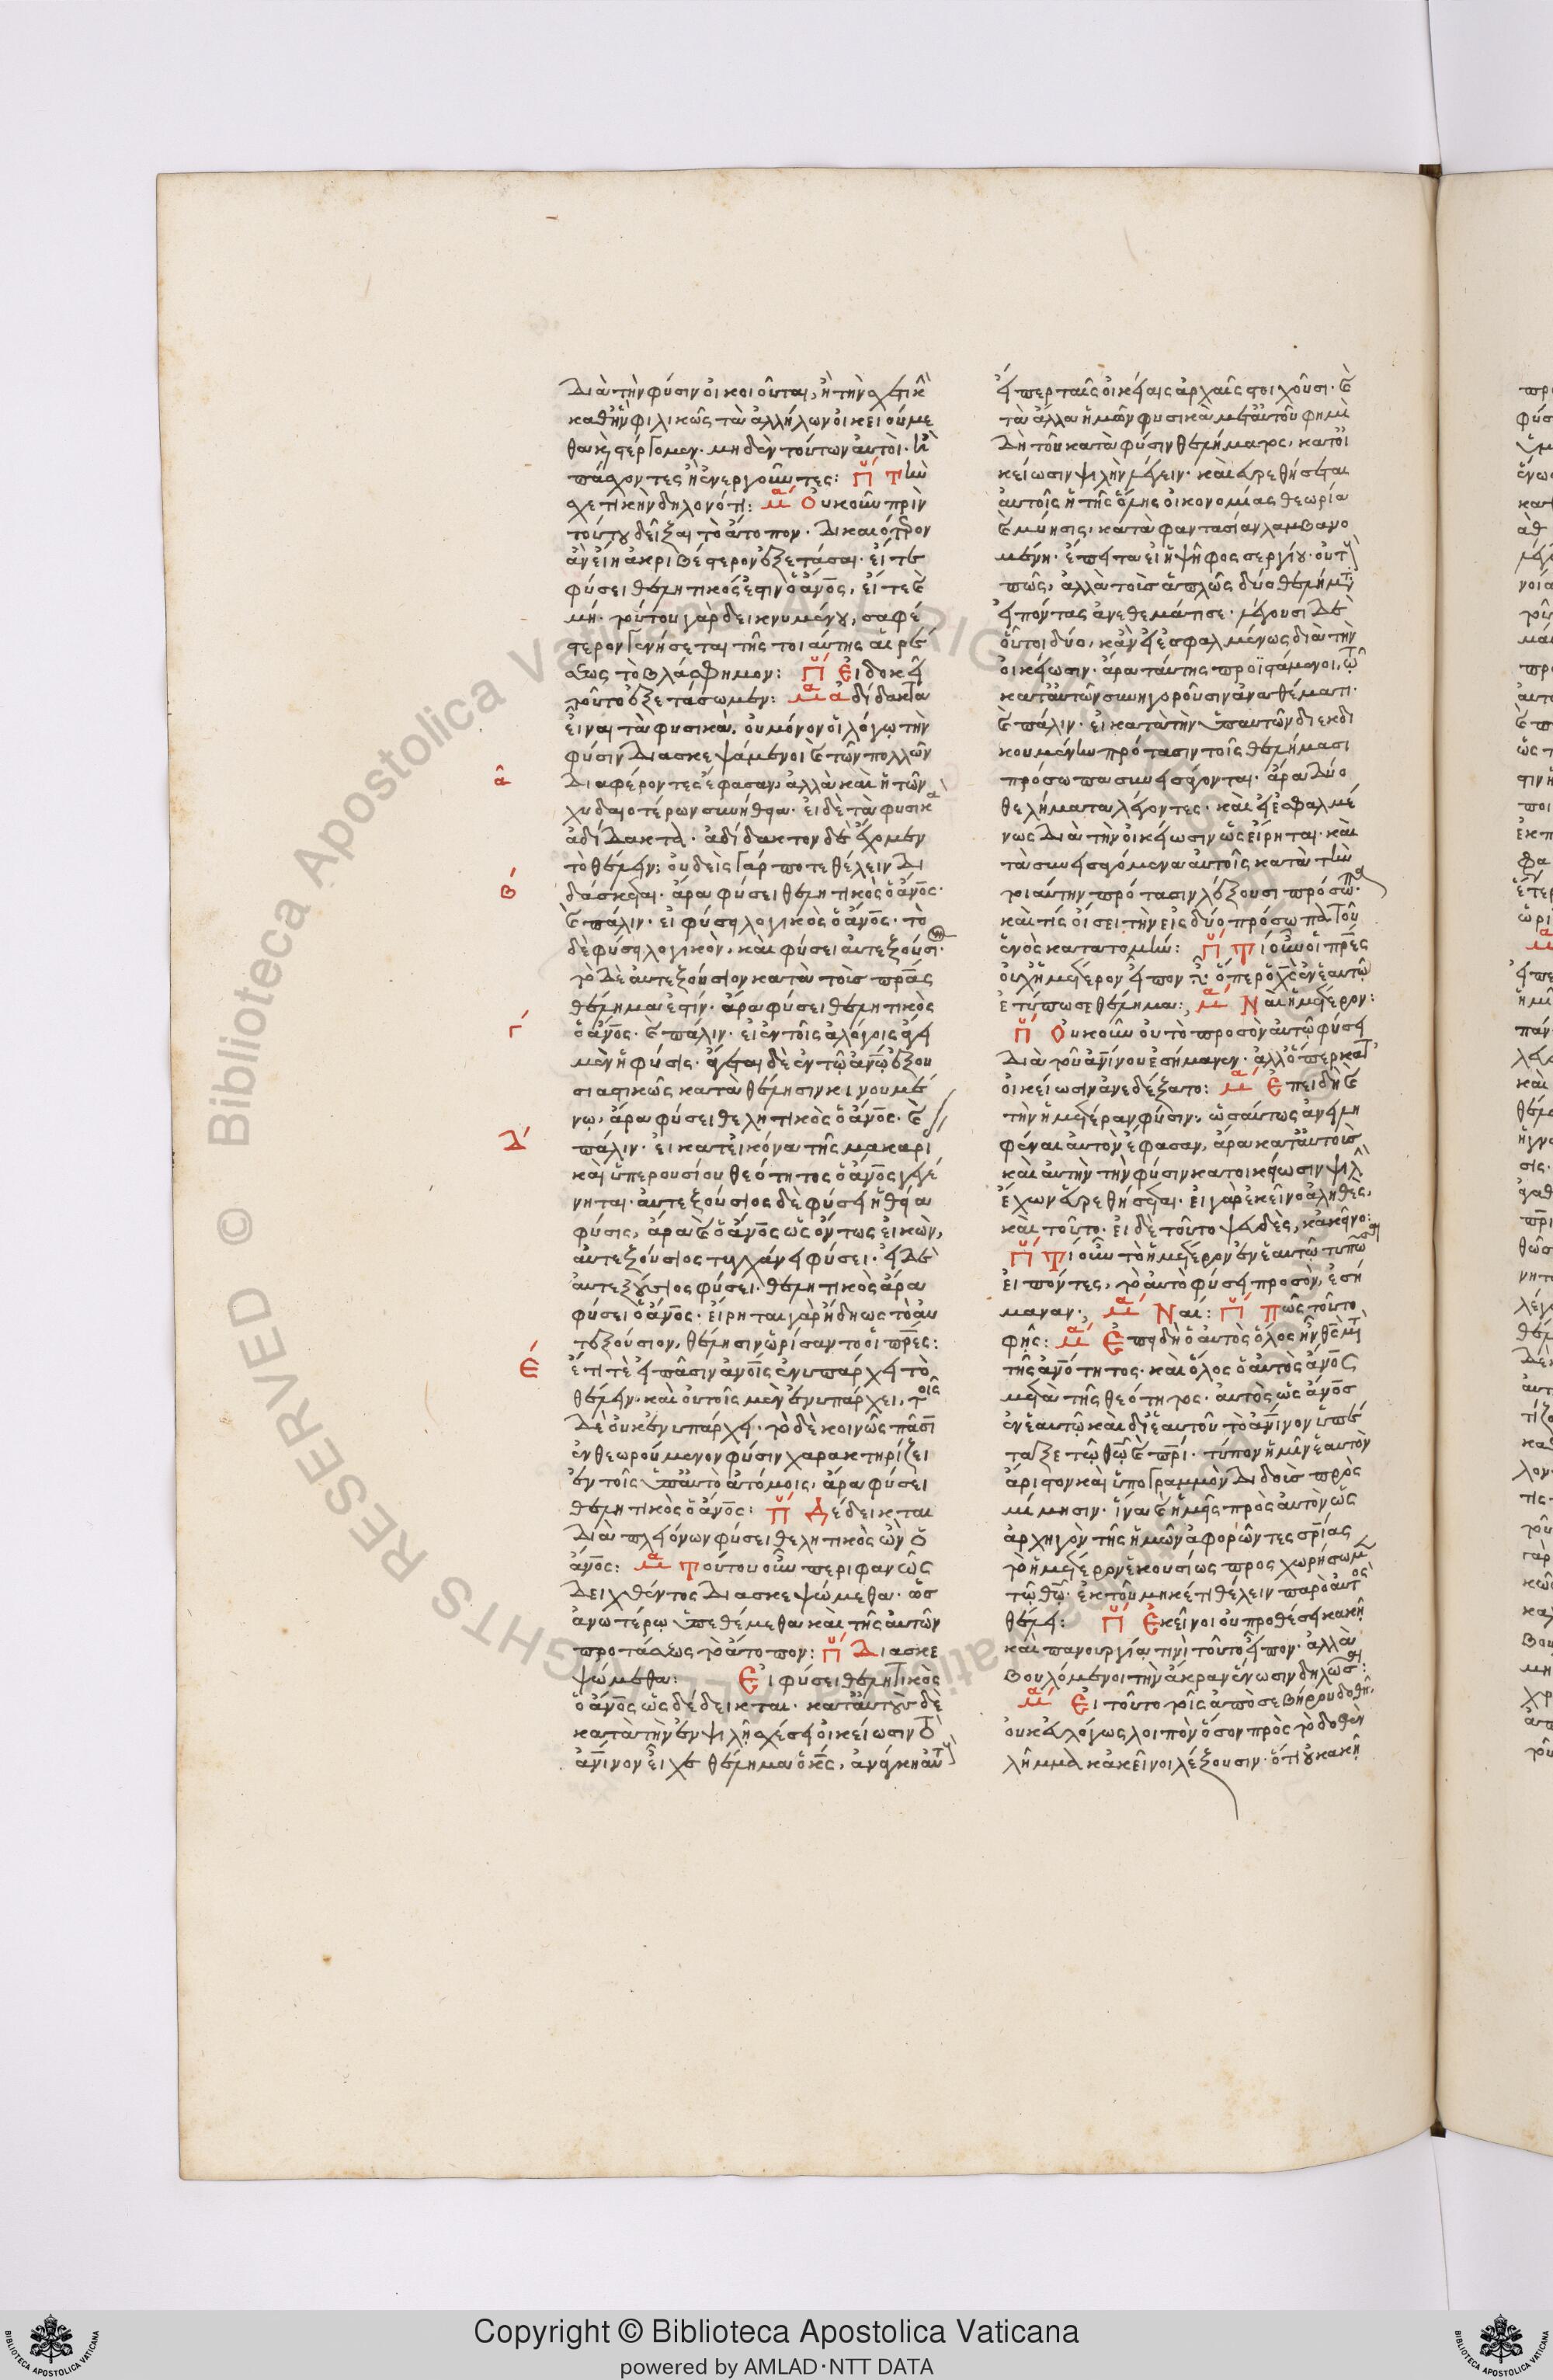 διὰ τὴν φύσιν οἰκειοῦται, ἢ τὴν σχετικὴ
καθ' ἣν φιλικῶς τὰ ἀλλήλων οἰκειούμε
θα καὶ στέργομεν· μηδὲν τούτων αὐτοὶ· ἢ
πάσχοντες ἢ ἐνεργοῦντες: Π Τὴν
σχετικὴν δηλονότι: Μ Οὐκοῦν πρὶν
τούτου δεῖξαι τὸ ἄτοπον· δικαιότερον
ἂν εἴη ἀκριβέστερον ἐξετάσαι· εἴτε
φύσει θελητικός ἐστιν ὁ ἄνος, εἴτε καὶ
μή· τούτου γὰρ δεικνυμένου, σαφέ
στερον γενήσεται τῆς τοιαύτης αἱρέ
σεως τὸ βλάσφημον: Π Εἰ δοκεῖ
τοῦτο ἐξετάσωμεν: Μ ἀδίδακτα
εἶναι τὰ φυσικὰ, οὐ μόνον οἱ λόγῳ τὴν
φύσιν διασκεψάμενοι καὶ τῶν πολλῶν
α διαφέροντες ἔφασαν, ἀλλὰ καὶ ἡ τῶν
χυδαιοτέρων συνήθεια· εἰ δὲ τὰ φυσικὰ
ἀδίδακτα· ἀδίδακτον δὲ ἔχομεν
τὸ θέλειν; οὐδεὶς γάρ ποτε θέλειν δι
β δάσκεται· ἄρα φύσει θελητικὸς ὁ ἄνος·
καὶ πάλιν· εἰ φύσει λογικὸς ὁ ἄνος· τὸ
δὲ φύσει λογικὸν, καὶ φύσει αὐτεξούσι·
τὸ δὲ αὐτεξούσιον κατὰ τοὺς πρας
θέλημα ἐστίν· ἄρα φύσει θελητικὸς
γ ὁ ἄνος· καὶ πάλιν· εἰ ἐν τοῖς ἀλόγοις ἄγει
μὲν ἡ φύσις· ἄγεται δὲ ἐν τῷ ἀνῳ ἐξου
σιαστικῶς κατὰ θέλησιν κινουμέ
νῳ, ἄρα φύσει θελητικὸς ὁ ἄνος· καὶ
δ πάλιν· εἰ κατ' εἰκόνα τῆς μακαρί
καὶ ὑπερουσίου θεότητος ὁ ἄνος γεγέ
νηται· αὐτεξούσιος δὲ φύσει ἡ θεία
φύσις, ἄρα καὶ ὁ ἄνος ὡς ὄντως εἰκὼν,
αὐτεξούσιος τυγχάνει φύσει· εἰ δὲ
αὐτεξούσιος φύσει· θελητικὸς ἄρα
φύσει ὁ ἄνος· εἴρηται γὰρ ἤδη ὡς τὸ αὐ
τεξούσιον, θέλησιν ὡρίσαντο οἱ πρες:
ε ἔτι τὲ εἰ πᾶσιν ἀνοις ἐνυπάρχει τὸ
θέλειν· καὶ οὐ τοῖς μὲν ἐνυπάρχει, τοῖς
δὲ οὐκ ἐνυπάρχει· τὸ δὲ κοινῶς πᾶσι
ἐνθεωρούμενον φύσιν χαρακτηρίζει
ἐν τοῖς ὑπ' αὐτὸ ἀτόμοις, ἄρα φύσει
θελητικὸς ὁ ἄνος: Π Δέδεικται
διὰ πλειόνων φύσει θελητικὸς ὢν ὁ
ἄνος: Μ Τούτου οὖν περιφανῶς
δειχθέντος διασκεψώμεθα· ὡς
ἀνωτέρω ὑπεθέμεθα καὶ τῆς αὐτῶν
προτάσεως τὸ ἄτοπον: Π Διασκε
ψώμεθα: Εἰ φύσει θελητικὸς
ὁ ἄνος ὡς δέδεικται· κατ' αὐτοὺς δὲ
κατὰ τὴν ἐν ψιλῇ σχέσει οἰκείωσιν τὸ
ἀνινον εἶχε θέλημα ὁ κς, ἀνάγκη αὐτ
εἴπερ ταῖς οἰκείαις ἀρχαῖς στοιχοῦσι· καὶ
τὰ ἄλλα ἡμῶν φυσικὰ μετ' αὐτοῦ φημὶ
δὴ τοῦ κατὰ φύσιν θελήματος, κατ' οἰ
κείωσιν ψιλὴν λέγειν· καὶ εὑρεθήσεται
αὐτοῖς ἡ τῆς ὅλης οἰκονομίας θεωρία
καὶ μύησις, κατὰ φαντασίαν λαμβανο
μένη· ἔπειτα εἰ ἡ ψῆφος σεργίου· οὐ τ
πως, ἀλλὰ τοὺς ἁπλῶς δύο θελήμτ
εἰπόντας ἀνεθεμάτισε· λέγουσι δὲ
οὗτοι δύο, κἂν εἰ ἐσφαλμένως διὰ τὴν
οἰκείωσιν· ἄρα ταύτης προϊστάμενοι, τῷ
κατ' αὐτῶν συνηγοροῦσιν ἀναθέματι·
καὶ πάλιν· εἰ κατὰ τὴν ὑπ' αὐτῶν διεκδι
κουμένην πρότασιν τοῖς θελήμασι
πρόσωπα συνεισάγονται· ἄρα δύο
θελήματα λέγοντες· καὶ εἰ ἐσφαλμέ
νως διὰ τὴν οἰκείωσιν ὡς εἴρηται· καὶ
τὰ συνεισαγόμενα αὐτοῖς κατὰ τὴν
τοιαύτην πρότασιν λέξουσι πρόσωπα·
καὶ τίς οἴσει τὴν εἰς δύο πρόσωπα τοῦ
ἑνὸς κατατομήν: Π Τί οὖν οἱ πρες
οὐχ ἡμέτερον εἶπον ὅπερ ὁ χς ἐν ἑαυτῷ
ἐτύπωσε θέλημα: Μ Ναὶ ἡμέτερον:
Π Οὐκοῦν οὐ τὸ προσὸν αὐτῷ φύσει
διὰ τοῦ ἀνίνου ἐσήμαναν· ἀλλ' ὅπερ κατ'
οἰκείωσιν ἀνεδέξατο: Μ Ἐπειδὴ καὶ
τὴν ἡμετέραν φύσιν, ὡσαύτως ἀνειλη
φέναι αὐτὸν ἔφασαν, ἄρα κατ' αὐτοὺς
καὶ αὐτὴν τὴν φύσιν κατ' οἰκείωσιν ψιλὴ
ἔχων εὑρεθήσεται· εἰ γὰρ ἐκεῖνο ἀληθὲς,
καὶ τοῦτο· εἰ δὲ τοῦτο ψευδὲς, κἀκεῖνο:
Π Τί οὖν τὸ ἡμέτερον ἐν ἑαυτῷ τυπῶσαι
εἰπόντες, τὸ αὐτὸ φύσει προσὸν, ἐσή
μαναν· Μ Ναί: Π Πῶς τοῦτο
φῇς: Μ Ἐπειδὴ ὁ αὐτὸς ὅλος ἦν θς μετ
τῆς ἀνότητος· καὶ ὅλος ὁ αὐτὸς ἄνος
μετὰ τῆς θεότητος· αὐτὸς ὡς ἄνος
ἐν ἑαυτῷ καὶ δι' ἑαυτοῦ τὸ ἀνινον ὑπέ
ταξε τῷ θῷ καὶ πρι· τύπον ἡμῖν ἑαυτὸν
ἄριστον καὶ ὑπογραμμὸν διδοὺς πρὸς
μίμησιν· ἵνα καὶ ἡμεῖς πρὸς αὐτὸν ὡς
ἀρχηγὸν τῆς ἡμῶν ἀφορῶντες σρίας
τὸ ἡμέτερον ἑκουσίως προσχωρήσωμ
τῷ θῷ· ἐκ τοῦ μηκέτι θέλειν παρ' ὃ αὐτὸς
θέλει: Π Ἐκεῖνοι οὐ προθέσει κακῇ
καὶ πανουργίᾳ τινὶ τοῦτο εἶπον· ἀλλὰ
βουλόμενοι τὴν ἄκραν ἕνωσιν δηλῶσαι:
Μ Εἰ τοῦτο τοῖς ἀπὸ σεβήρου δοθῇ,
οὐκ εὐλόγως λοιπὸν ὅσον πρὸς τὸ δοθὲν
λῆμμα κἀκεῖνοι λέξουσιν· ὅτι οὐ κακῇ